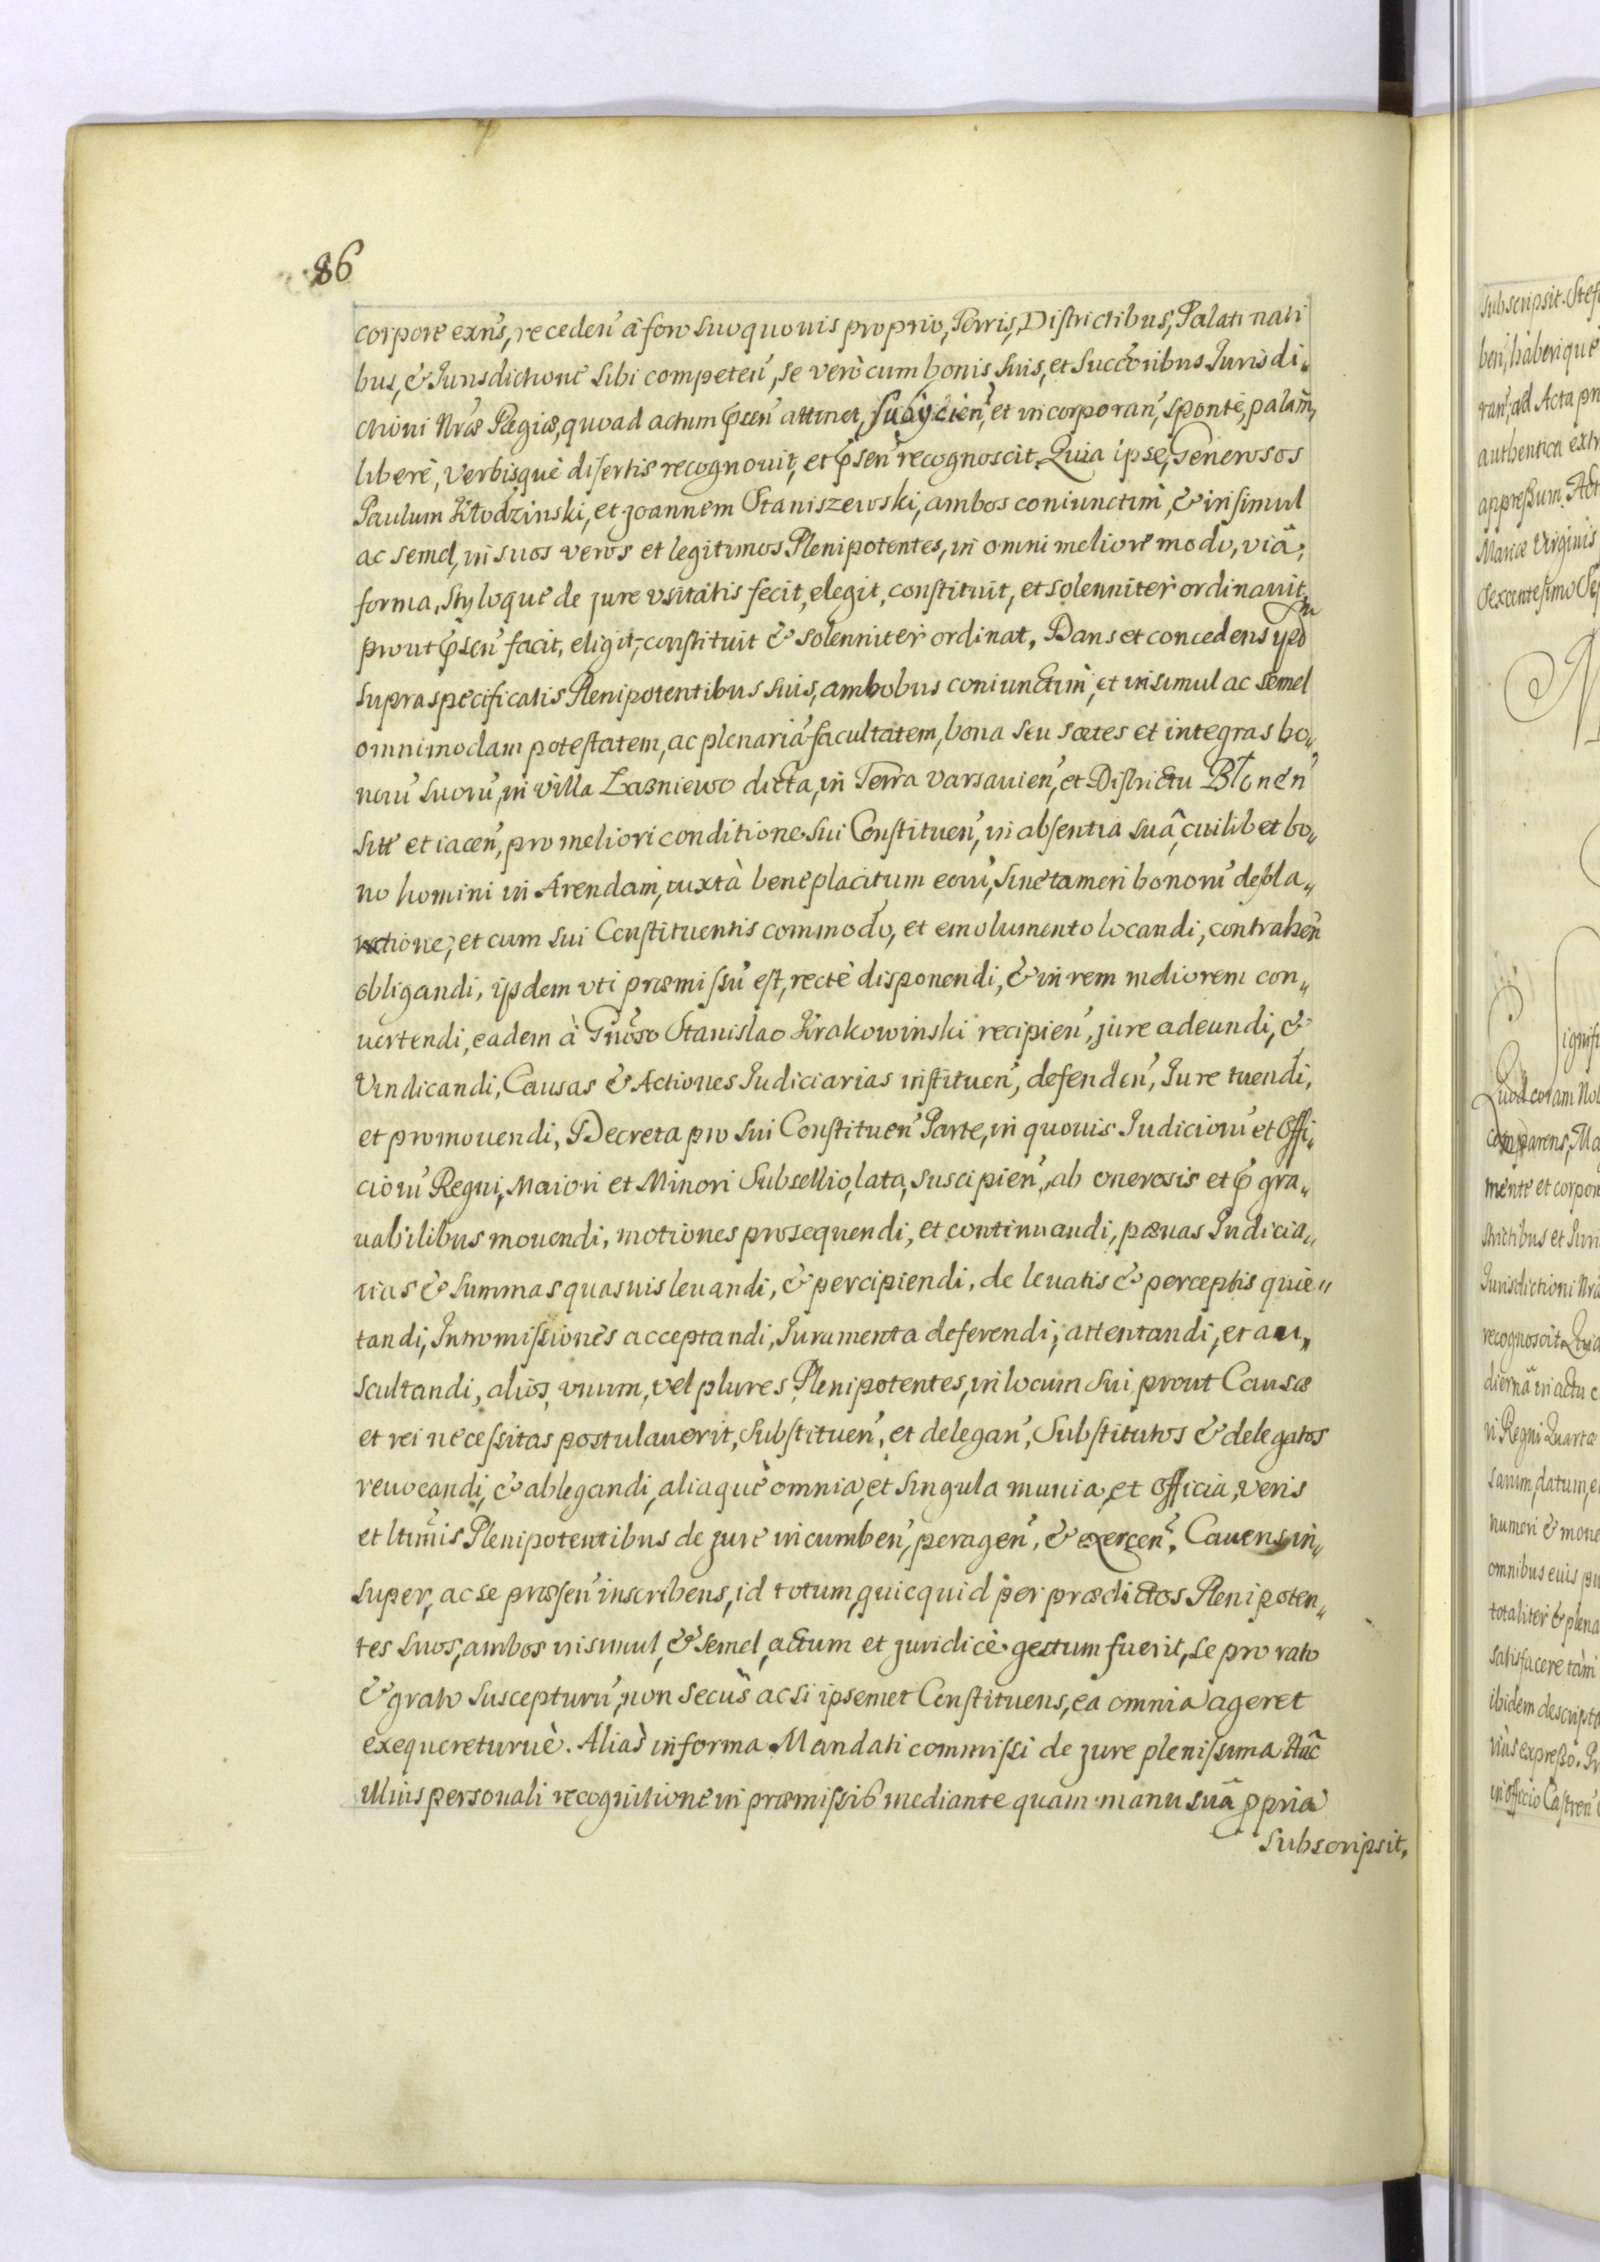 86
corpore exñs, receden̄ à foro suo quouis proprio, Terris, Districtibus, Palatinati
bus, & Jurisdictione sibi competen̄, se verò cum bonis suis, et succōribus Jurisdi„
ctioni Nr̃æ Regiæ, quoad actum p̃sen̄ attinet, subÿcien̄, et incorporan̄, sponte, palàm,
liberè, verbisquè disertis recognouit, et p̃sen̄ recognoscit. Quia ipse, Generosos
Paulum Kłodzinski, et Joannem Staniszewski, ambos coniunctim, & insimul
ac semel, in suos veros et legitimos Plenipotentes, in omni meliore modo, viâ,
forma, styloquè de jure vsitatis fecit, elegit, constituit, et solenniter ordinauit,
prout p̃sen̄ facit, eligit, constituit & solenniter ordinat. Dans et concedens
supraspecificatis Plenipotentibus suis, ambobus coniunctim, et insimul ac semel
omnimodam potestatem, ac plenariā facultatem, bona seu sortes et integras bo„
norū suorū, in villa Łazniewo dicta, in Terra Varsauien̄, et Districtu Błonen̄
sitt et iacen̄, pro meliori conditione sui Constituen̄, in absentia suâ, cuilibet bo„
no homini in Arendam, iuxtà beneplacitum eorū, sine tamen bonorū desola„
tione, et cum sui Constituentis commodo, et emolumento locandi, contrahen̄
obligandi, ÿsdem vti præmissū est, rectè disponendi, & in rem meliorem con„
uertendi, eadem à Gñoso Stanislao Krakowinski recipien̄, jure adeundi, &
Vindicandi, Causas & Actiones Judiciarias instituen̄, defenden̄, Jure tuendi,
et promouendi, Decreta pro sui Constituen̄ Parte, in quouis Judiciorū et Offi„
ciorū Regni, Maiori et Minori Subsellio, lata, suscipien̄, ab onerosis et p̃gra„
uabilibus mouendi, motiones prosequendi, et continuandi, pænas Judicia„
rias & summas quasuis leuandi, & percipiendi, de leuatis & perceptis quie„
tandi, Intromissionès acceptandi, Juramenta deferendi, attentandi, et au„
scultandi, alios, vnum, vel plures Plenipotentes, in locum sui prout Causæ
et rei necessitas postulauerit, substituen̄, et delegan̄, Substitutos & delegatos
reuocandi, & ablegandi, aliaquè omnia, et singula munia, et officia, veris
et ltīmis Plenipotentibus de jure incumben̄, peragen̄, & exercen̄. Cauens in„
super, ac se præsen̄ inscribens, id totum, quicquid per prædictos Plenipoten„
tes suos, ambos insimul, & semel, actum et juridicè gestum fuerit, se pro rato
& grato suscepturū, non secùs ac si ipsemet Constituens, ea omnia ageret
exequereturuè. Aliàs in forma Mandati commissi de jure plenissima
illius personali recognitione in præmissis mediante quam manu suâ ppria
subscripsit,